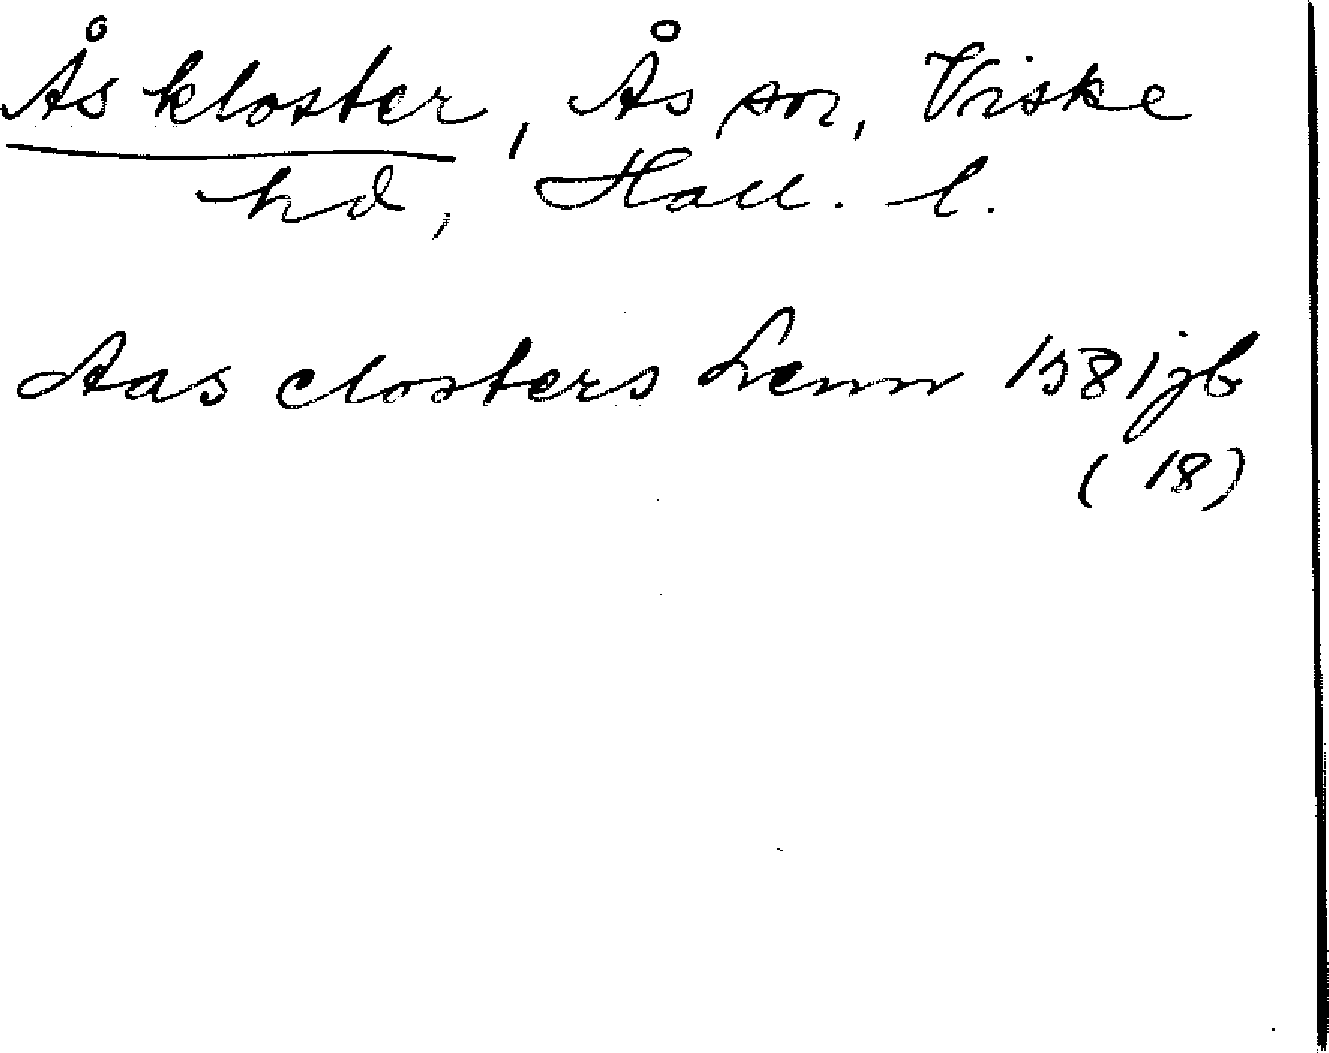 Ås kloster, Ås sn, Viske
hd, Hall. l.
Aas closters Lenn 1581 jb
(18)